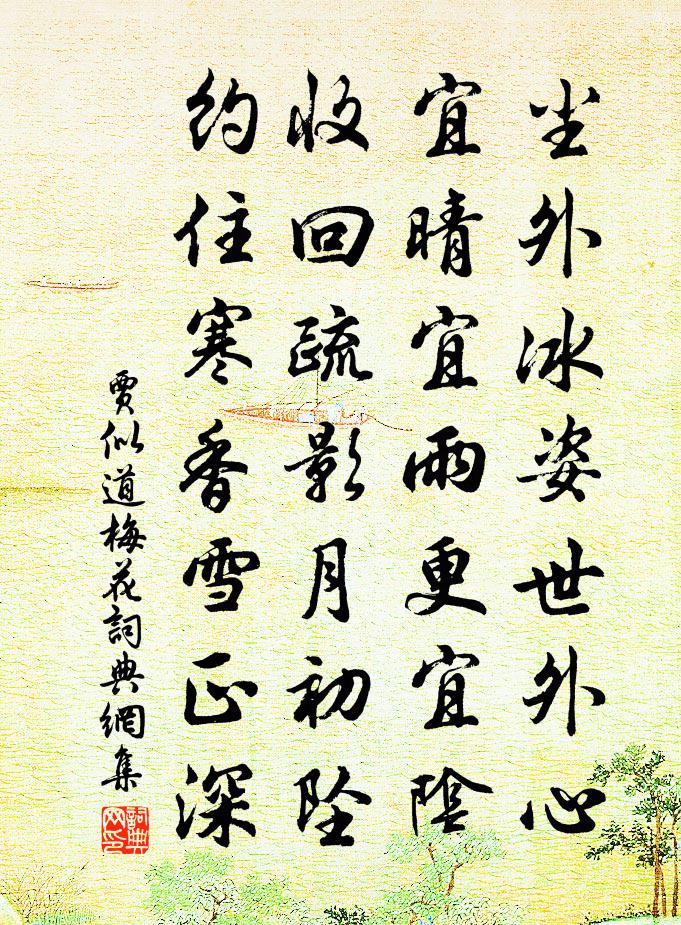 尘外冰姿世外心
宜晴宜雨更宜陰
收回疏影月初墜
約住寒香雪正深
賈似道梅花詞典網集
詞典
网印